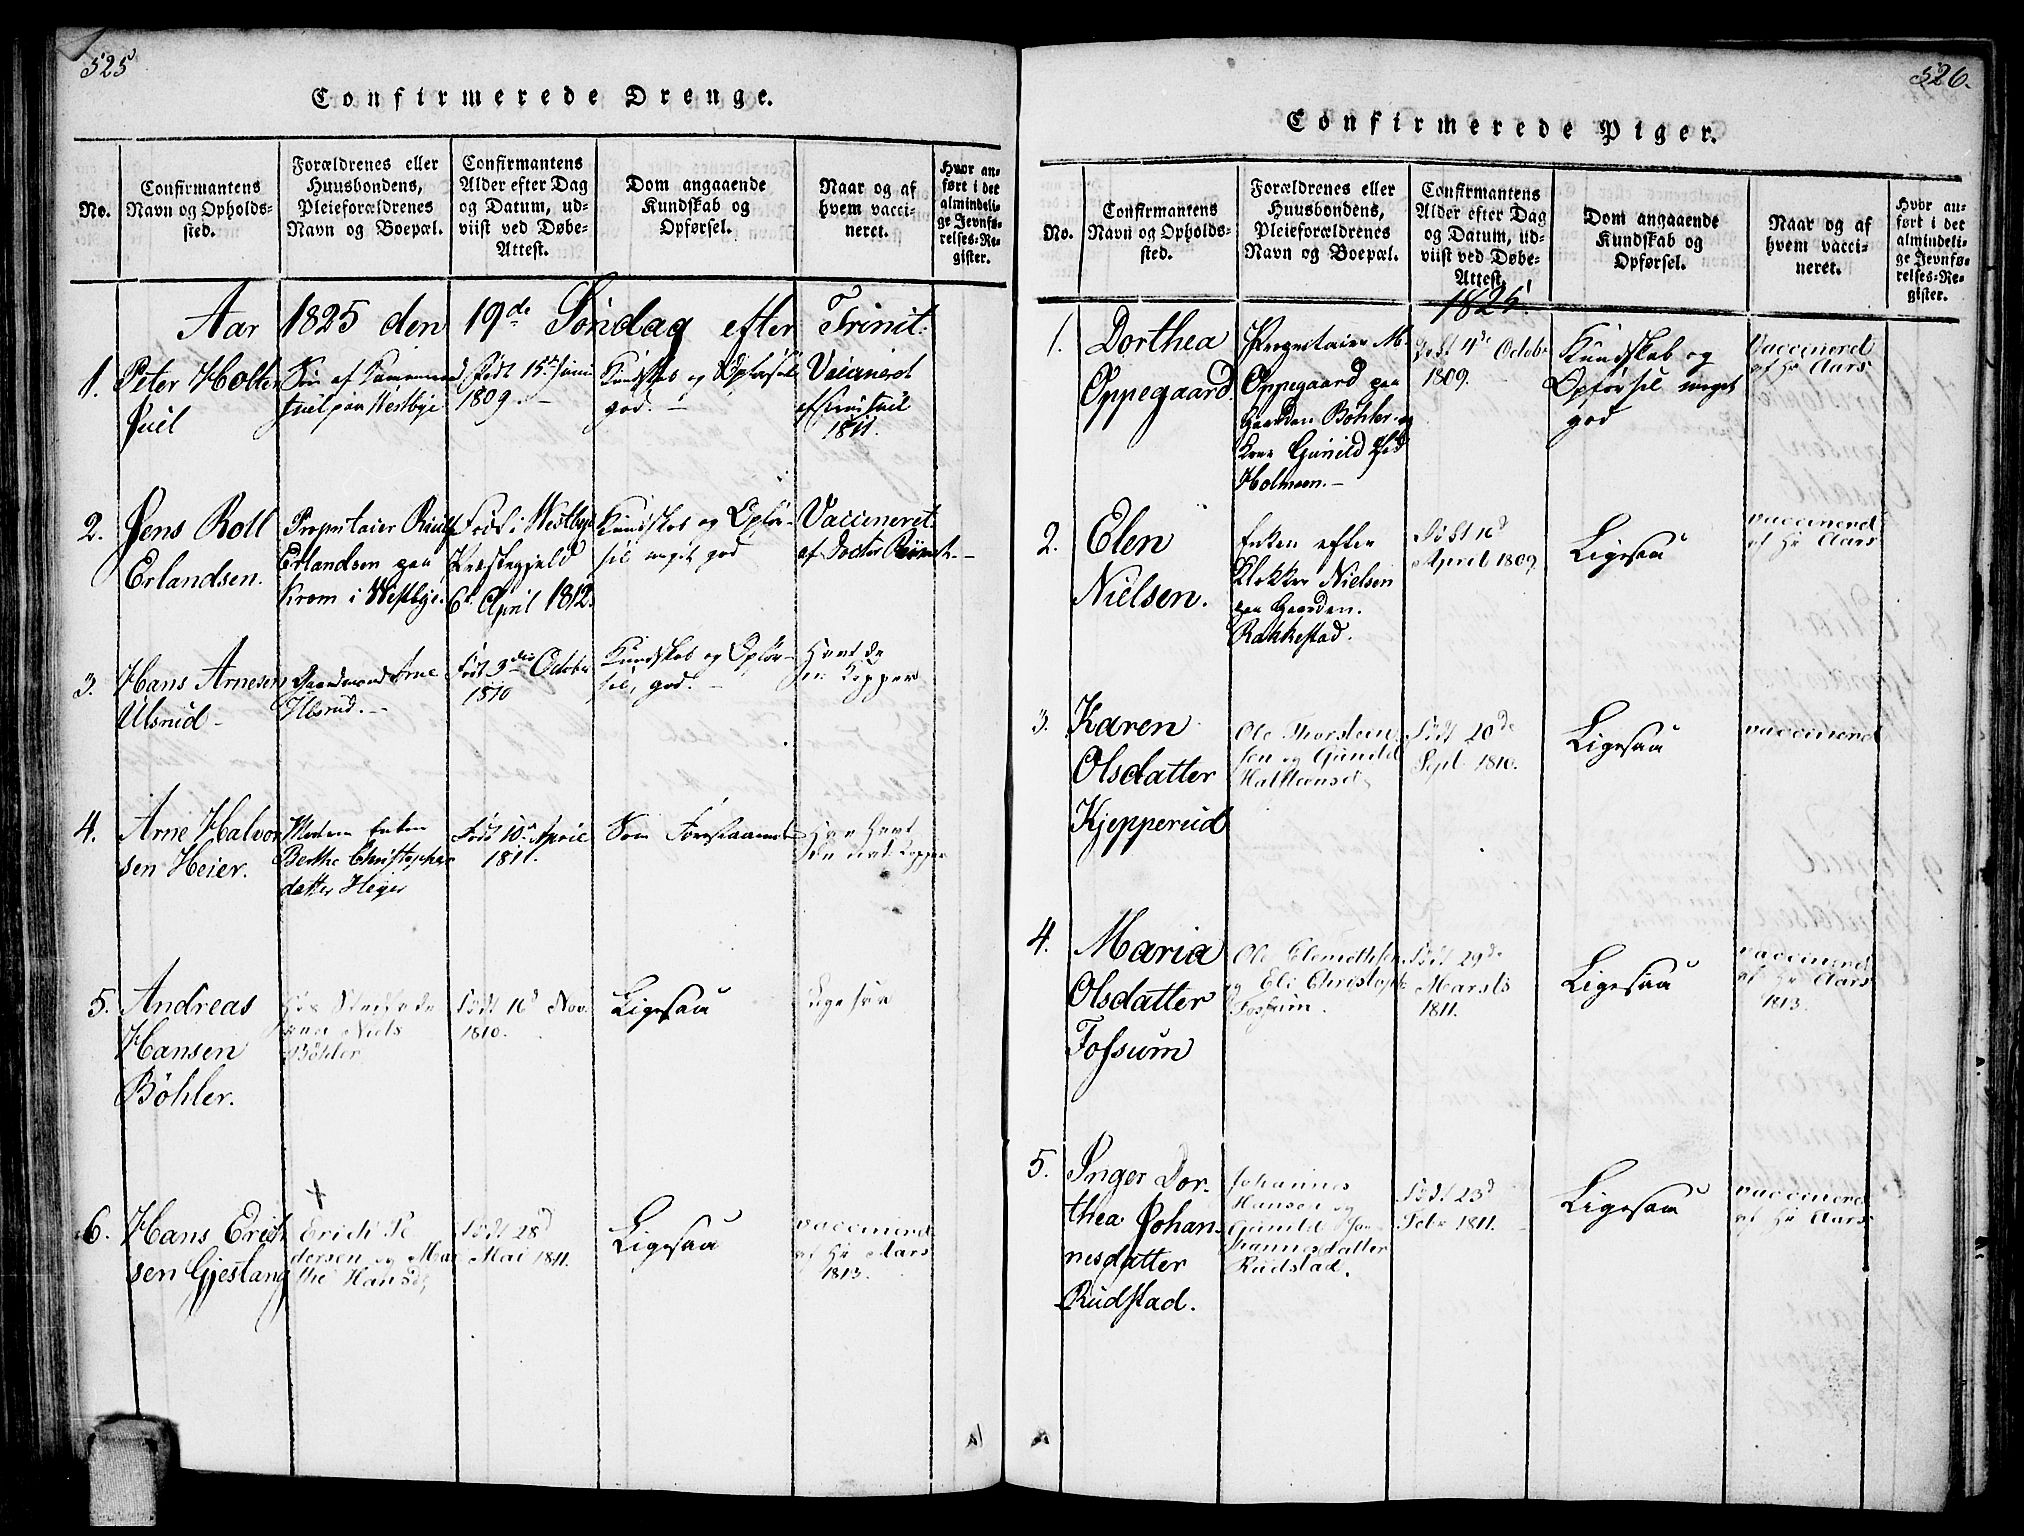 525
Confirmerede Drenge.
No.
Confirmantens
Navn og Opholds-
sted.
Forældrenes eller
Huusbondens,
Pleieforældrenes
Navn og Boepæl.
Confirmantens
Alder efter Dag
og Datum, ud-
viist ved Døbe-
Attest.
Dom angaaende
Kundskab og
Opførsel.
Naar og af
hvem vacci-
neret.
Hvor an-
ført i det
almindeli-
ge Jevnfø-
relses-Re-
gister.
Aar 1825 den 19de Søndag efter Trinit:
1.
Peter Holter
Juel
Søn af
Juel paa Westbye
født 15de Juni
1809.
Kundskab og Opførsel
god.
Vaccineret
af Juel
1811.
2.
Jens Roll
Erlandsen.
Proprietaier
Erlandsen paa
Krom i Westbye.
Født i Westbye
Præstegjeld
6te April 1812.
Kundskab og Opfør-
sel meget god
Vaccineret
af Doctor
3.
Hans Arnesen
Ulsrud
Gaardmand Arne
Ulsrud.
Født 3die October
1810
Kundskab og Opfør-
sel, god.
Havt de
Kopper
4.
Arne Halvor
sen Heier.
Moderen Enken
Berthe Christopher
datter Heyer
Født 10de April
1811.
Som Forestaaende
Har Havt
Kopper
5.
Andreas
Hansen
Böhler.
Hos
Niels
Böhler
Født 16d Nov.
1810.
Ligesaa
Ligesaa
6.
Hans Erich
sen Gjeslang
Erich Pe
dersen og Mar
the Hansd.
Født 28d
Mai 1811.
Ligesaa
vaccinered
af Hr Aars
1813.
526.
Confirmerede Piger.
No.
Confirmantens
Navn og Opholds-
sted.
Forældrenes eller
Huusbondens,
Pleieforældrenes
Navn og Boepæl.
Confirmantens
Alder efter Dag
og Datum, ud-
viist ved Døbe-
Attest.
Dom angaaende
Kundskab og
Opførsel.
Naar og af
hvem vacci-
neret.
Hvor an-
ført i det
almindeli-
ge Jevnfø-
relses-Re-
gister.
1825.
1.
Dorthea
Oppegaard
Proprietaier M.
Oppegaard paa
Gaarden Böhler og
Kone Gunild
Holmsen.
Født 4de Octobr
1809.
Kundskab og
Opførsel meget
god
Vaccinered
af Hr Aars
2.
Elen
Nielsen.
Enken efter
Klokker Nielsen
paa Gaarden
Rakkestad.
Født 16d
April 1809
Ligesaa
vaccinered
af Hr Aars
3.
Karen
Olsdatter
Kjepperud
Ole Thorstein
sen og Gunild
Født 20de
Sept. 1810.
Ligesaa
vaccinered
4.
Maria
Olsdatter
Fossum
Ole Clemethsen
og Eli Christoph
Fossum.
Født 29de
Marsts
1811.
Ligesaa
vaccinered
af Hr Aars
1813.
5.
Inger Dor-
thea Johan-
nesdatter
Rudstad.
Johannes
Hansen og
Gunild Jo
hannesdatter
Rudstad.
Født 23d
Febr 1811.
Ligesaa
vaccinered
af Hr Aars